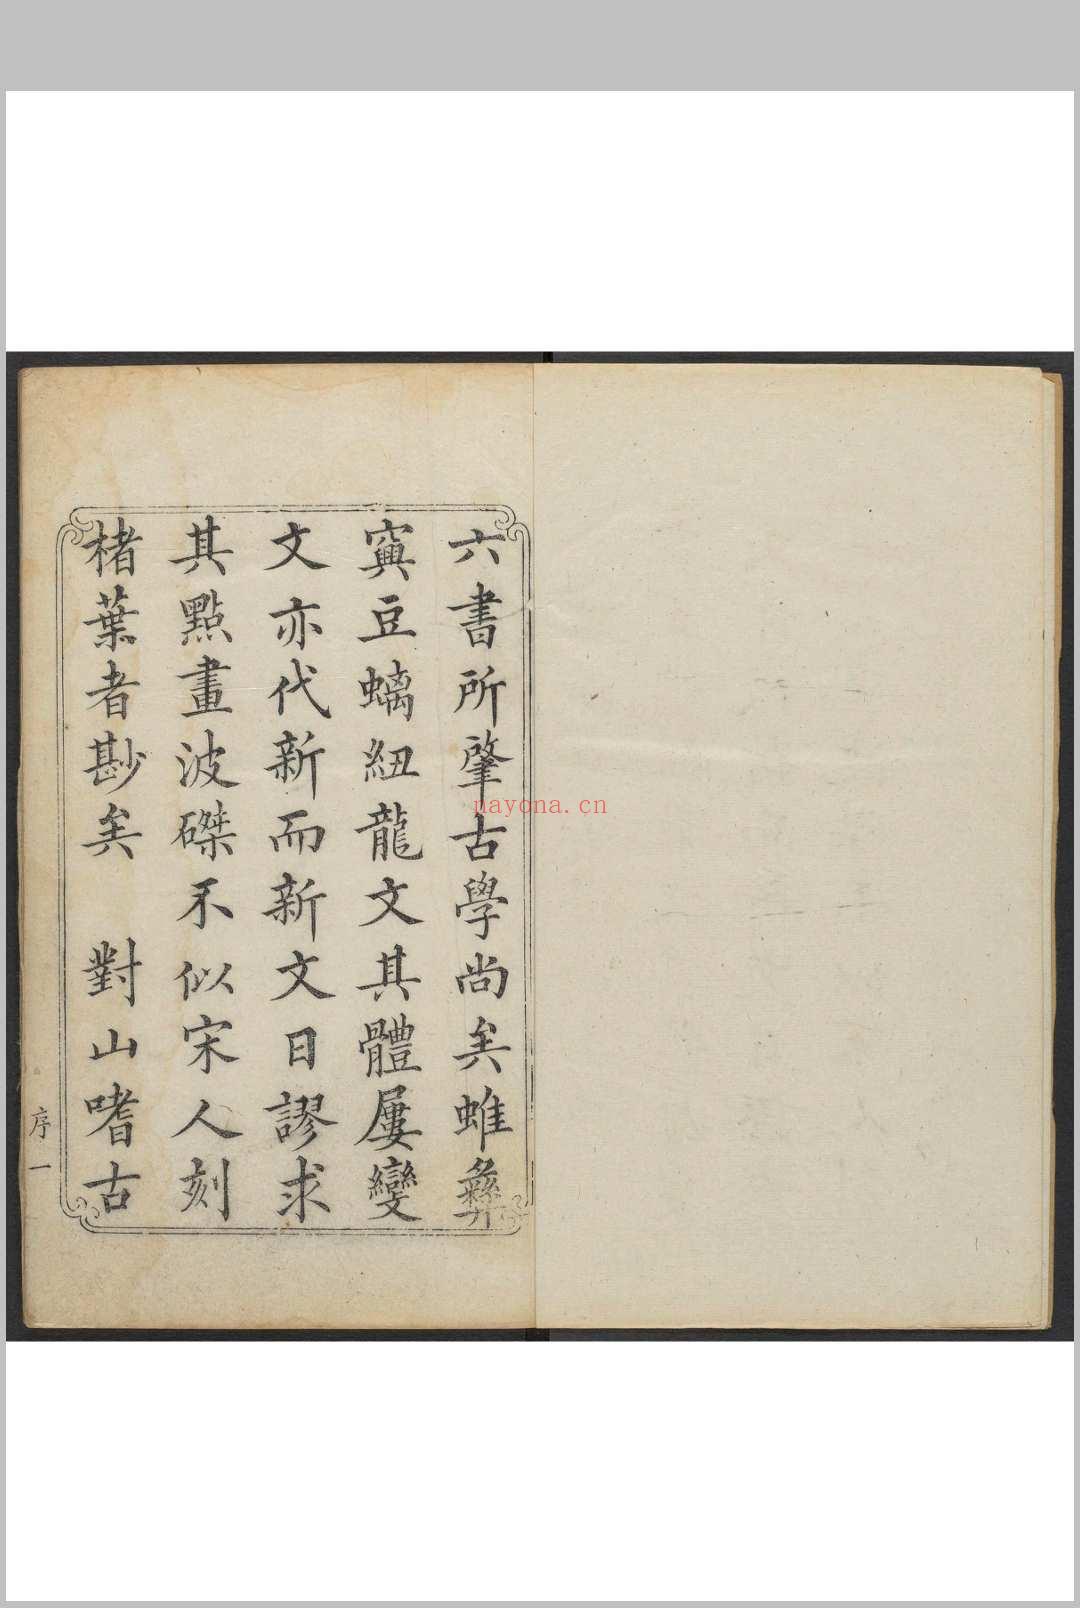 六書所肇古學尚矣蜼彝
寅豆螭紐龍文其體屢變
文亦代新而新文日謬求
其點畫波磔不似宋人刻
楮葉者尠矣 對山嗜古
序一
nayona.cn